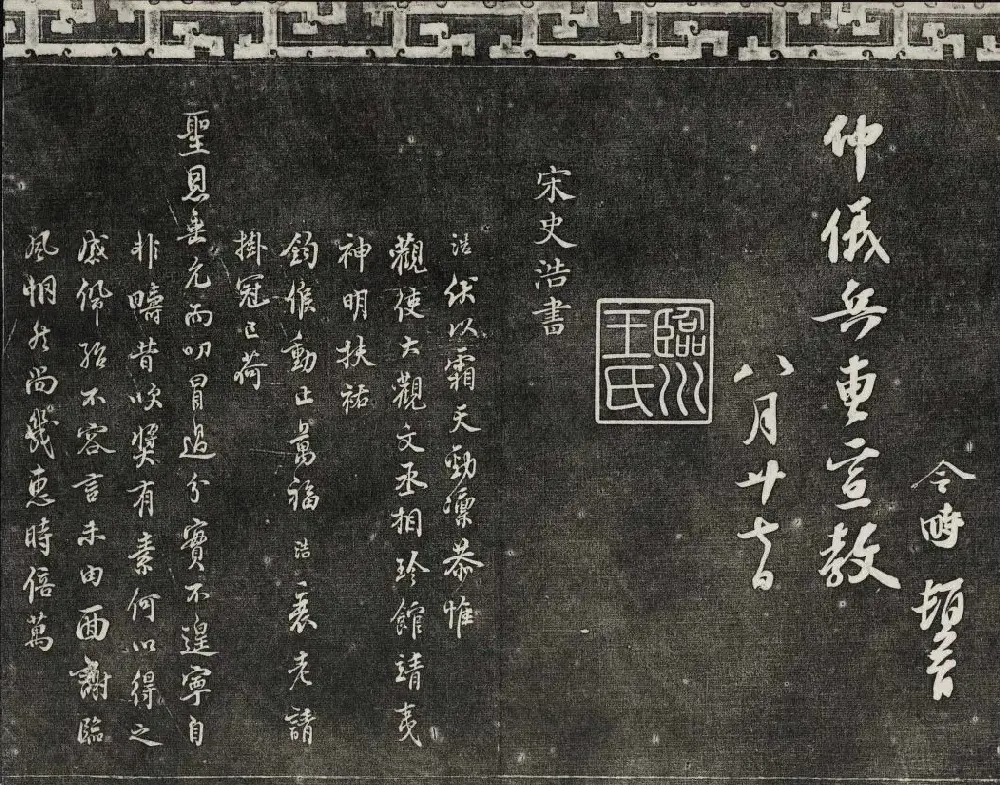 令畤 頓首
仲儀兵曹宣教
八月廿七日
臨川王氏
宋史浩書
浩伏以霜天勁凜恭惟
觀使大觀文丞相珍館靖夷
神明扶祐
鈞候動止萬福浩衰老請
掛冠已荷
聖恩垂允而叨冒過分實不遑寧自
非疇昔吹奬有素何以得之
感佩殆不容言未由面謝臨
風惘然尚幾惠時倍萬